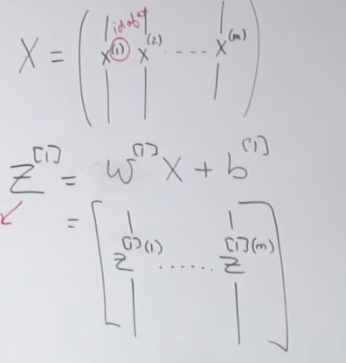 X = ( x^(1) x^(2) ---- x^(m) )
Z^[1] = W^[1] X + b^[1]
= [ z^[1](1) ...... z^[1](m) ]